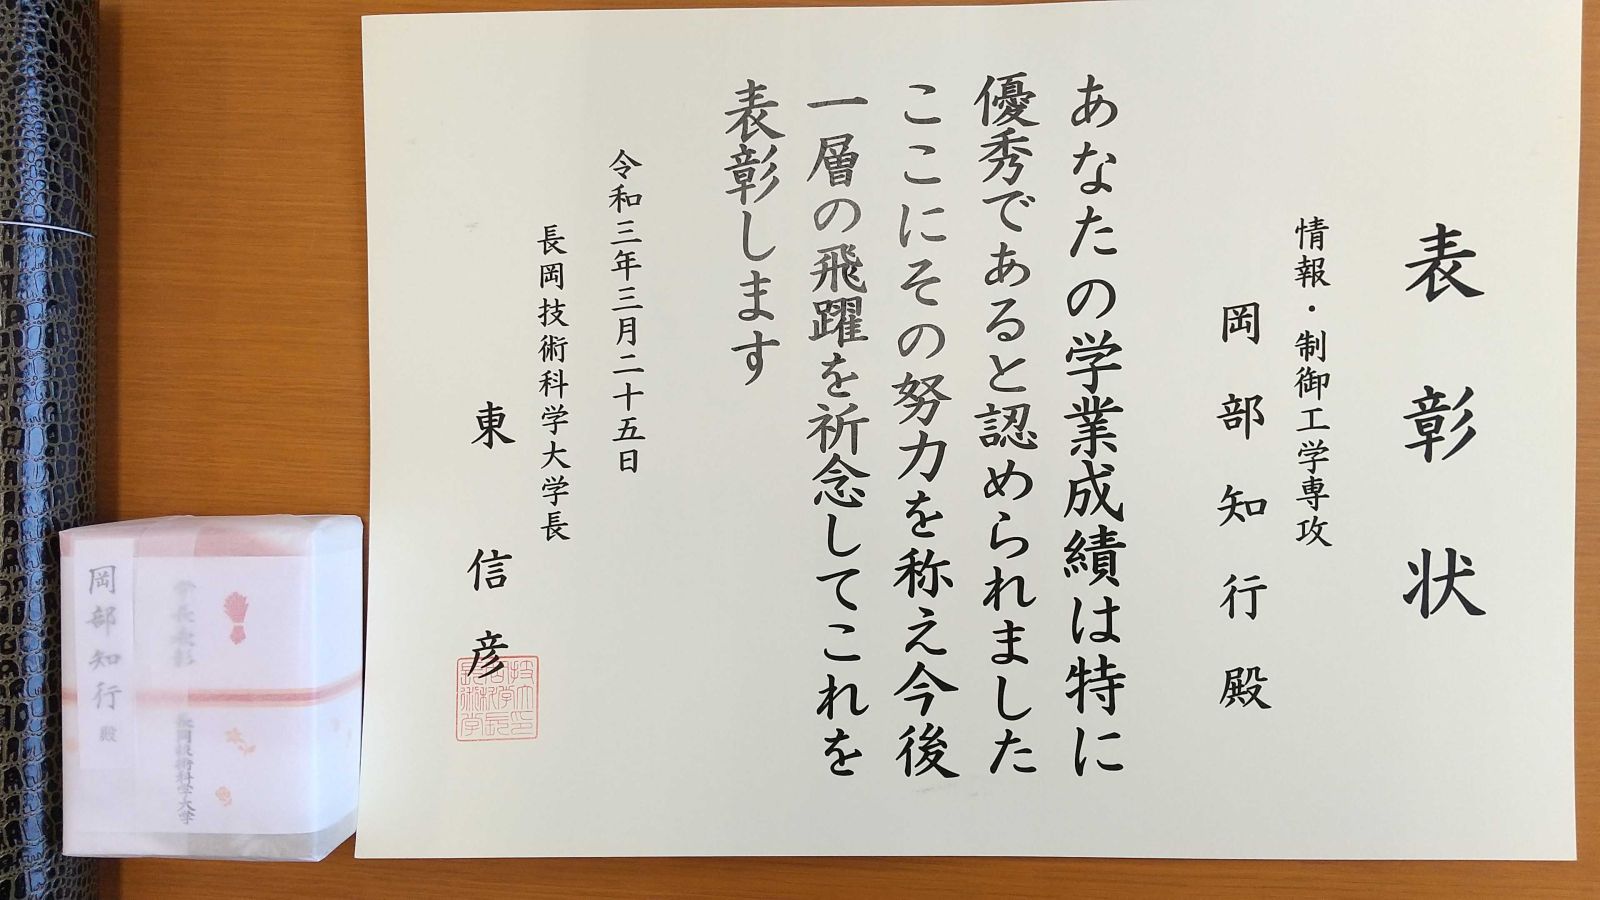 表彰状
情報・制御工学専攻
岡部知行殿
あなたの学業成績は特に
優秀であると認められました
ここにその努力を称え今後
一層の飛躍を祈念してこれを
表彰します
令和三年三月二十五日
長岡技術科学大学長
東信彦
学長表彰
長岡技術科学大学
岡部知行殿